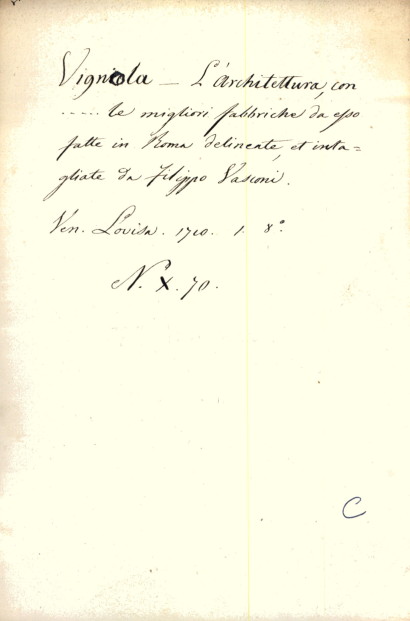 Vignola — L'Architettura, con
..... le migliori fabbriche da esso
fatte in Roma delineate, et inta=
gliate da Filippo Vasconi.
Ven. Lovisa. 1720. 1. 8º
N. X. 70.
C